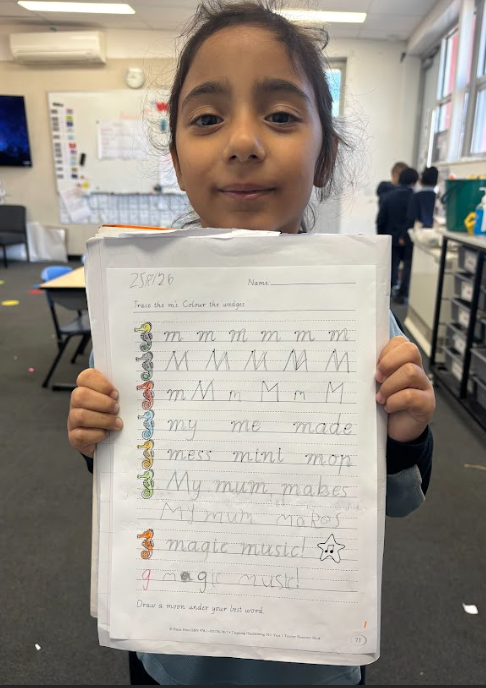 Name
Trace the m's. Colour the wedges.
m m m m m m
M M M M M
m M m M m M
my me made
mess mint mop
My mum makes
My mum makes
magic music!
g magic music!
Draw a moon under your best word.
71